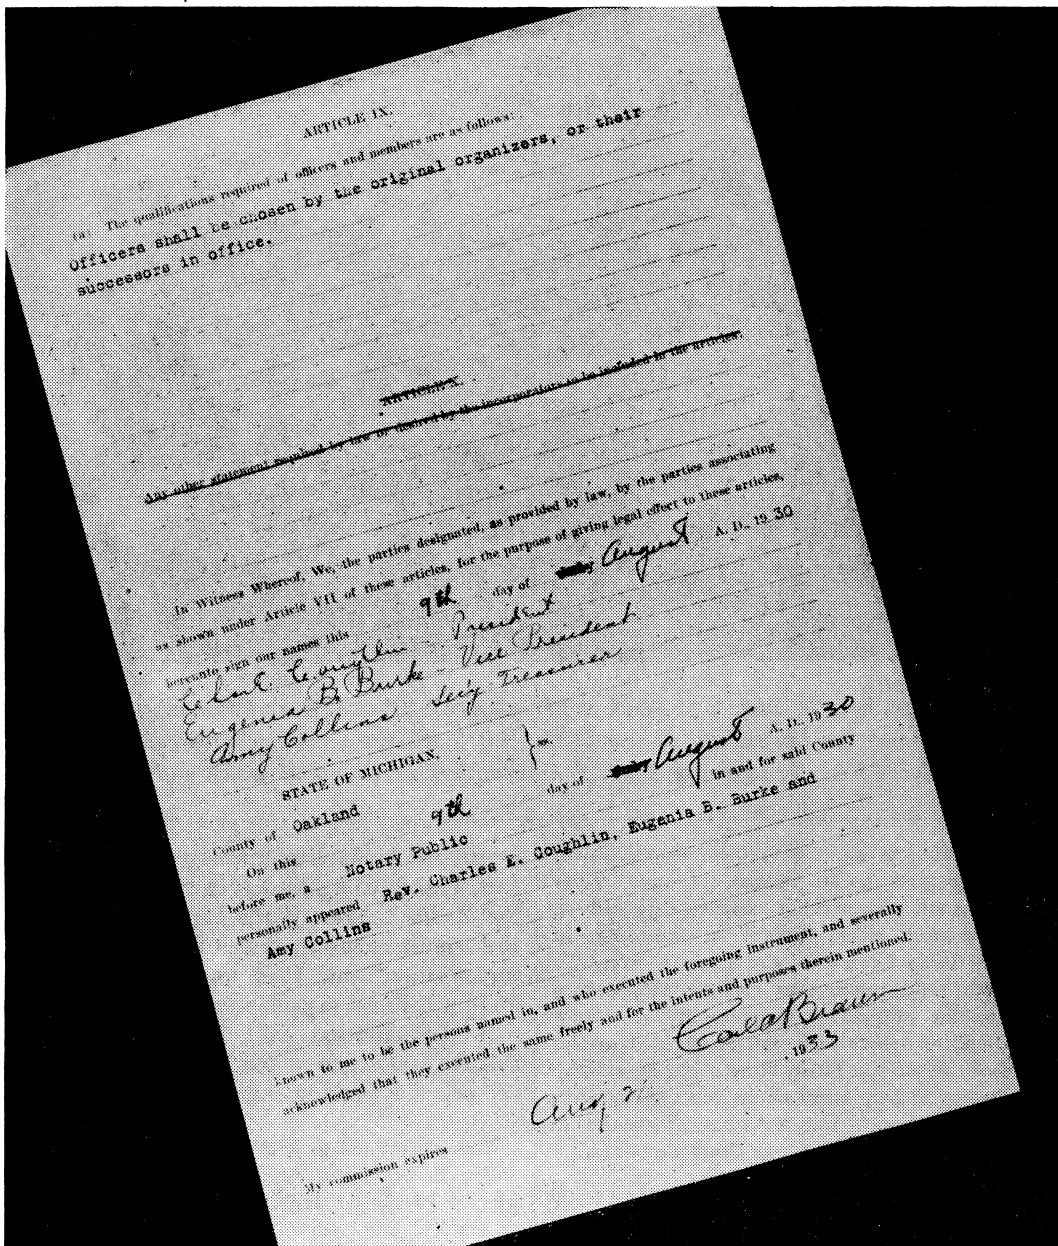 ARTICLE IX.
(a) The qualifications required of officers and members are as follows:
Officers shall be chosen by the original organizers, or their
successors in office.
ARTICLE X.
Any other statement required by law or desired by the incorporators to be included in the articles.
In Witness Whereof, We, the parties designated, as provided by law, by the parties associating
as shown under Article VII of these articles, for the purpose of giving legal effect to these articles,
hereunto sign our names this 9th day of August A. D., 1930
Chas. E. Coughlin President
Eugenia B. Burke - Vice President
Amy Collins Sec'y Treasurer
STATE OF MICHIGAN, } ss.
County of Oakland
On this 9th day of August A. D., 1930
before me, a Notary Public in and for said County
personally appeared Rev. Charles E. Coughlin, Eugenia B. Burke and
Amy Collins
known to me to be the persons named in, and who executed the foregoing instrument, and severally
acknowledged that they executed the same freely and for the intents and purposes therein mentioned.
Braun
My commission expires Aug 2 , 1933